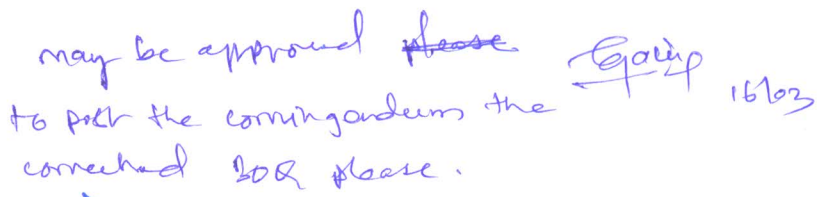 may be approved ~~please~~
to post the corringendum the
corrected BOQ please.
16/03